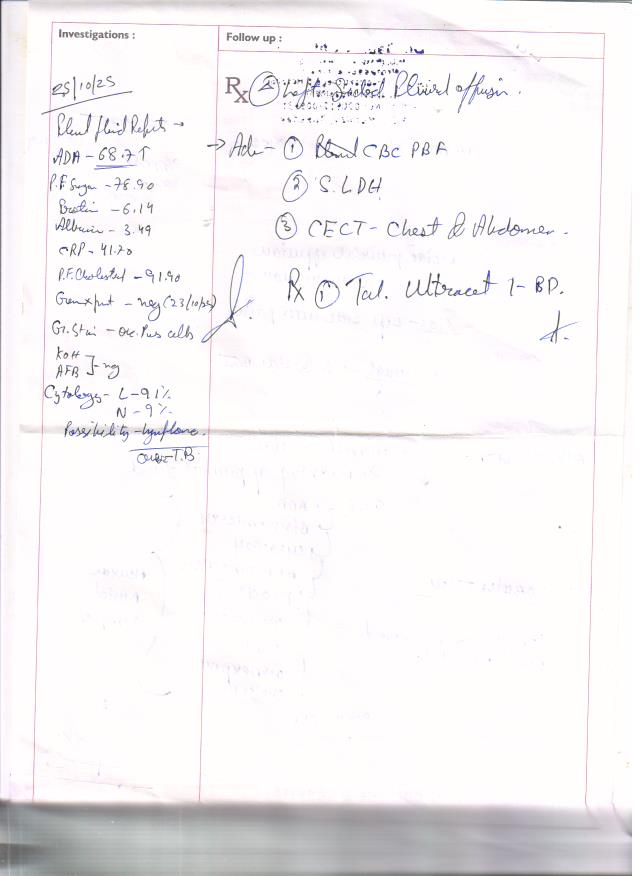 Investigations :
25/10/25
Pleural fluid Reports →
ADA - 68.7 ↑
P.F. Sugar - 78.90
Protein - 6.14
Albumin - 3.49
CRP - 41.70
P.F. Cholesterol - 91.90
Genexpert - neg (23/10/25)
Gr. Stain - occ. Pus cells
KOH
AFB } - neg
Cytology - L - 91%
N - 9%
Possibility -
T.B
Follow up :
Rx Left Sided Pleural effusion.
→ Adv - ① CBC PBF
② S. LDH
③ CECT - Chest & Abdomen.
Rx ① Tab. Ultracet 1 - BD.